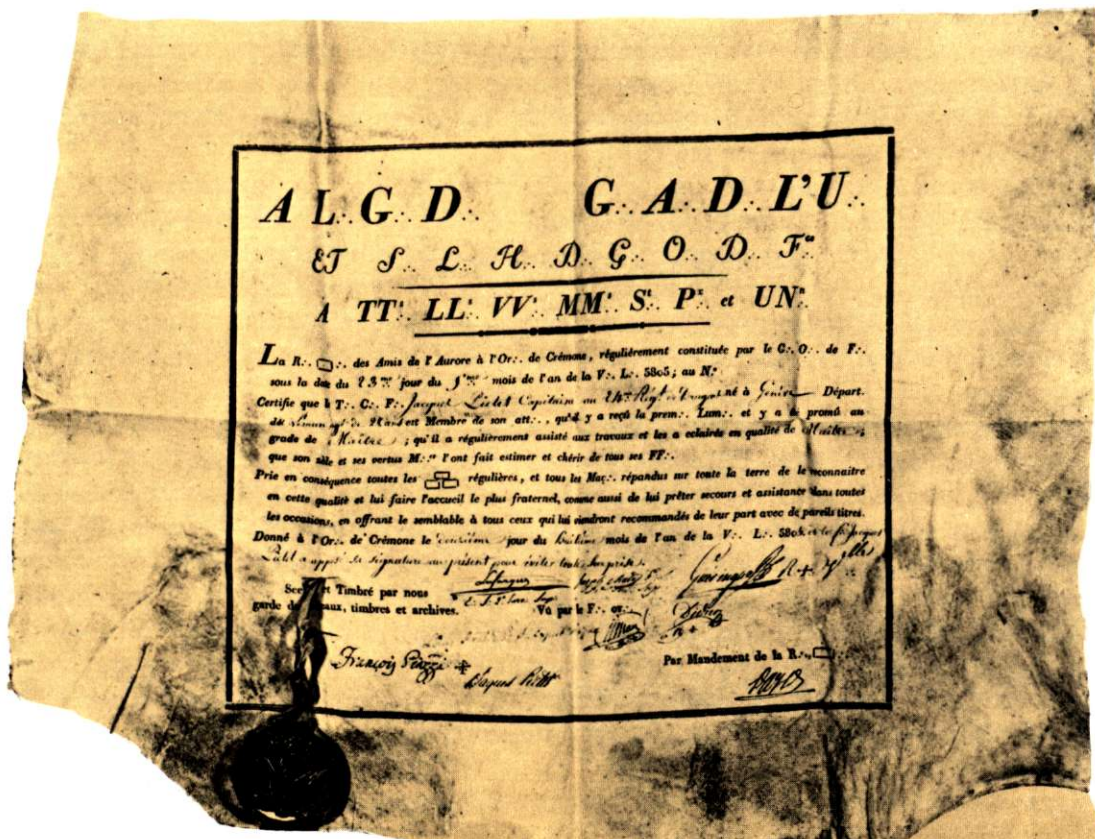 A L∴ G∴ D∴ G∴ A∴ D∴ L'U∴
ET S∴ L∴ H∴ D∴ G∴ O∴ D∴ F∴
A TT∴ LL∴ VV∴ MM∴ S∴ P∴ et UN∴
La R∴ ▭∴ des Amis de l'Aurore à l'Or∴ de Crémone, régulièrement constituée par le G∴ O∴ de F∴
sous la date du 23me jour du mois de l'an de la V∴ L∴ 5805; au N.°
Certifie que le T∴ C∴ F∴ Jacques Capitaine au 24me Régt né à Départ.
du est Membre de son att∴, qu'il y a reçû la prem∴ Lum∴ et y a été promû au
grade de Maître; qu'il a régulièrement assisté aux travaux et les a eclairés en qualité de Maître;
que son zèle et ses vertus M∴ l'ont fait estimer et chérir de tous ses FF∴
Prie en conséquence toutes les régulières, et tous les Maç∴ répandus sur toute la terre de le reconnaitre
en cette qualité et lui faire l'accueil le plus fraternel, comme aussi de lui prêter secours et assistance dans toutes
les occasions, en offrant le semblable à tous ceux qui lui viendront recommandés de leur part avec de pareils titres.
Donné à l'Or∴ de Crémone le jour du mois de l'an de la V∴ L∴ 580 et le f∴ Jacques
a apposé sa signature au présent pour éviter toute surprise.
Scellé et Timbré par nous
garde des sceaux, timbres et archives. Vû par le F∴ or∴
François
Jacques
Par Mandement de la R∴ ▭∴